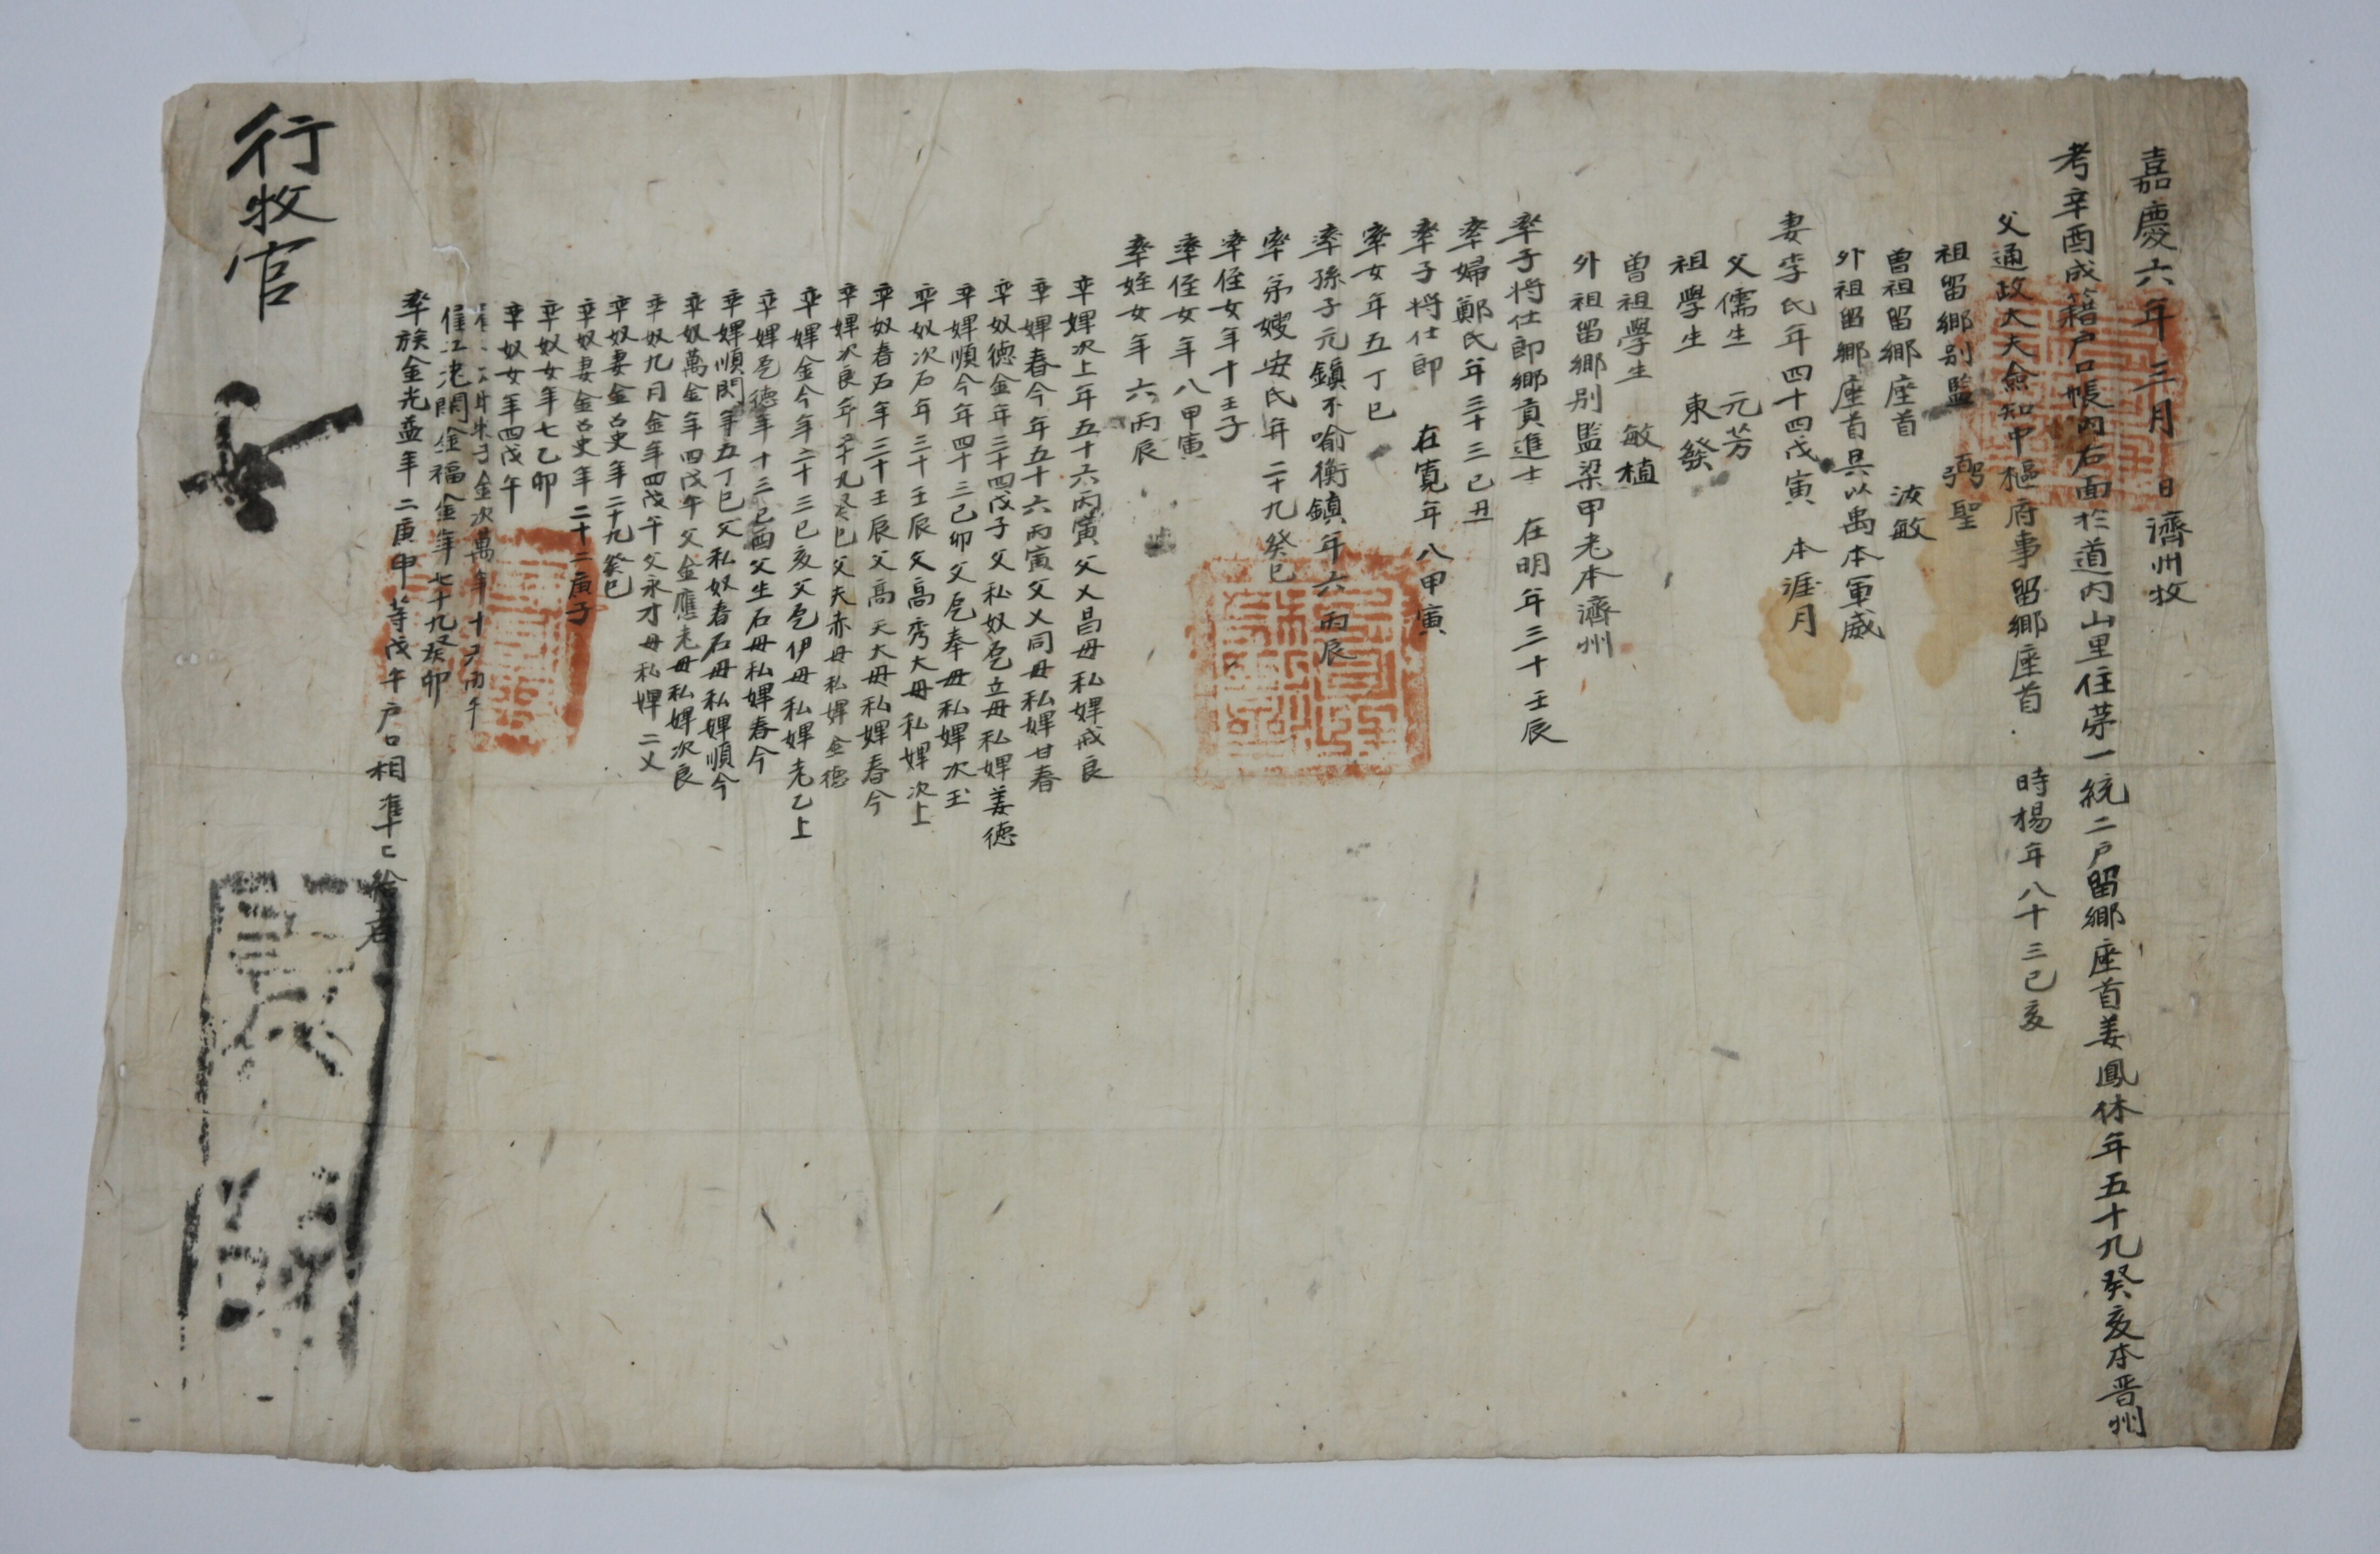 嘉慶六年三月 日 濟州牧
考辛酉成籍戶口帳內右面於道內山里住苐一統二戶留鄉座首姜鳳休年五十九癸亥本晋州
父通政大夫僉知中樞府事留鄉座首 時楊年八十三己亥
祖留鄉别監 弼聖
曾祖留鄉座首 汝敏
外祖留鄉座首具以禹本軍威
妻李氏年四十四戊寅 本涯月
父儒生 元芳
祖學生 東發
曾祖學生 敏植
外祖留鄉别監梁甲老本濟州
率子將仕郎鄉貢進士 在明年三十壬辰
率婦鄭氏年三十三己丑
率子將仕郎 在寬年八甲寅
率女年五丁巳
率孫子元鎮不喻衡鎮年六丙辰
率弟嫂安氏年二十九癸巳
率侄女年十壬子
率侄女年八甲寅
率姪女年六丙辰
率婢次上年五十六丙寅父乂昌母私婢戒良
率婢春今年五十六丙寅父乂同母私婢甘春
率奴德金年三十四戊子父私奴乭立母私婢姜德
率婢順今年四十三己卯父乭奉母私婢次玉
率奴次石年三十壬辰父高秀大母私婢次上
率奴春石年三十壬辰父高天大母私婢春今
率婢次良年二十九癸巳父夫赤母私婢金德
率婢金今年二十三己亥父乭伊母私婢老乙上
率婢乭德年十三己酉父生石母私婢春今
率婢順閏年五丁巳父私奴春石母私婢順今
率奴萬金年四戊午父金應老母私婢次良
率奴九月金年四戊午父永才母私婢二乂
率奴妻金召史年二十九癸巳
率奴妻金召史年二十二庚子
率奴女年七乙卯
率奴女年四戊午
子金次萬年十六丙午
雇工老閑金福金年七十九癸卯
率族金光益年二庚申等戊午戶口相準乙給者
行牧官